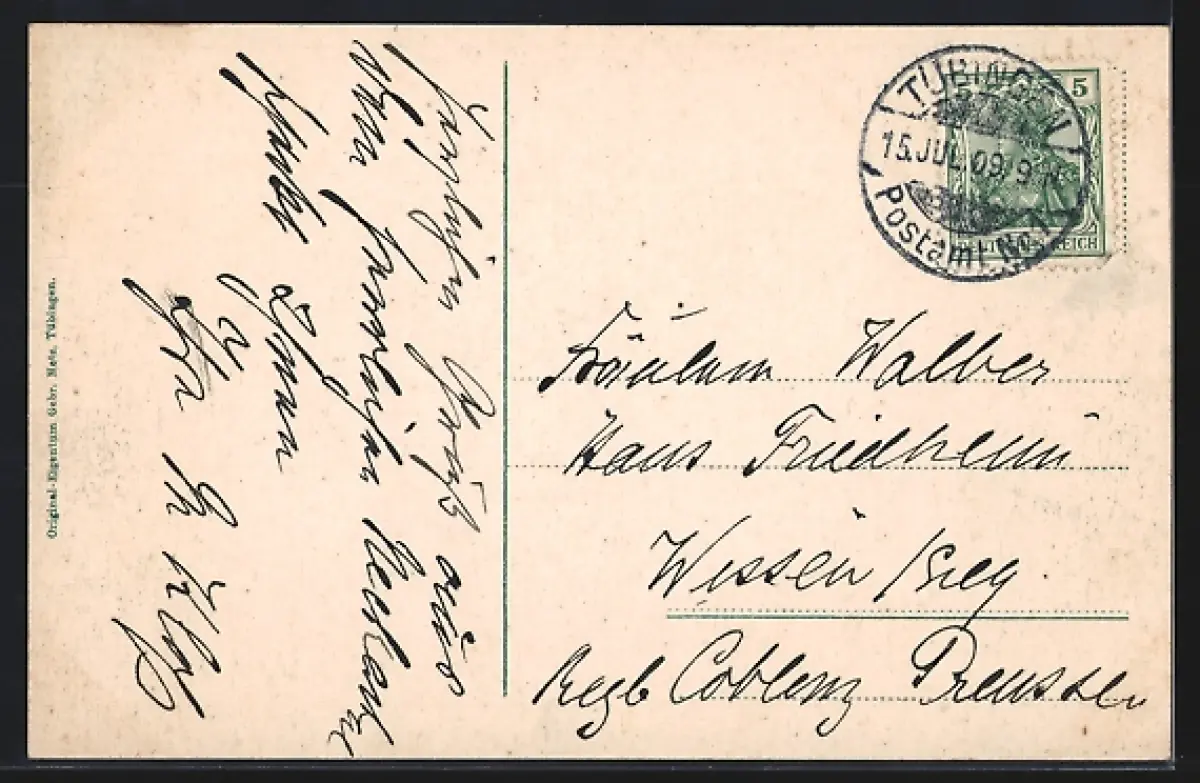 TÜBINGEN
15.JUL.09.9-
Postamt No 1
5
DEUTSCHES REICH
Fräulein Walber
Haus Friedheim
Wissen / Sieg
Regb Coblenz Preussen
Gruß aus
dem herrlichen Neckartal
Ihnen
Ihr
Original-Eigentum Gebr. Metz, Tübingen.